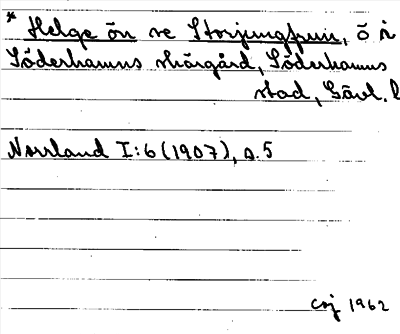 * Helge ön se Storjungfrun, ö i
Söderhamns skärgård, Söderhamns
stad, Gävl. l
Norrland I:6 (1907), s. 5
CSj 1962